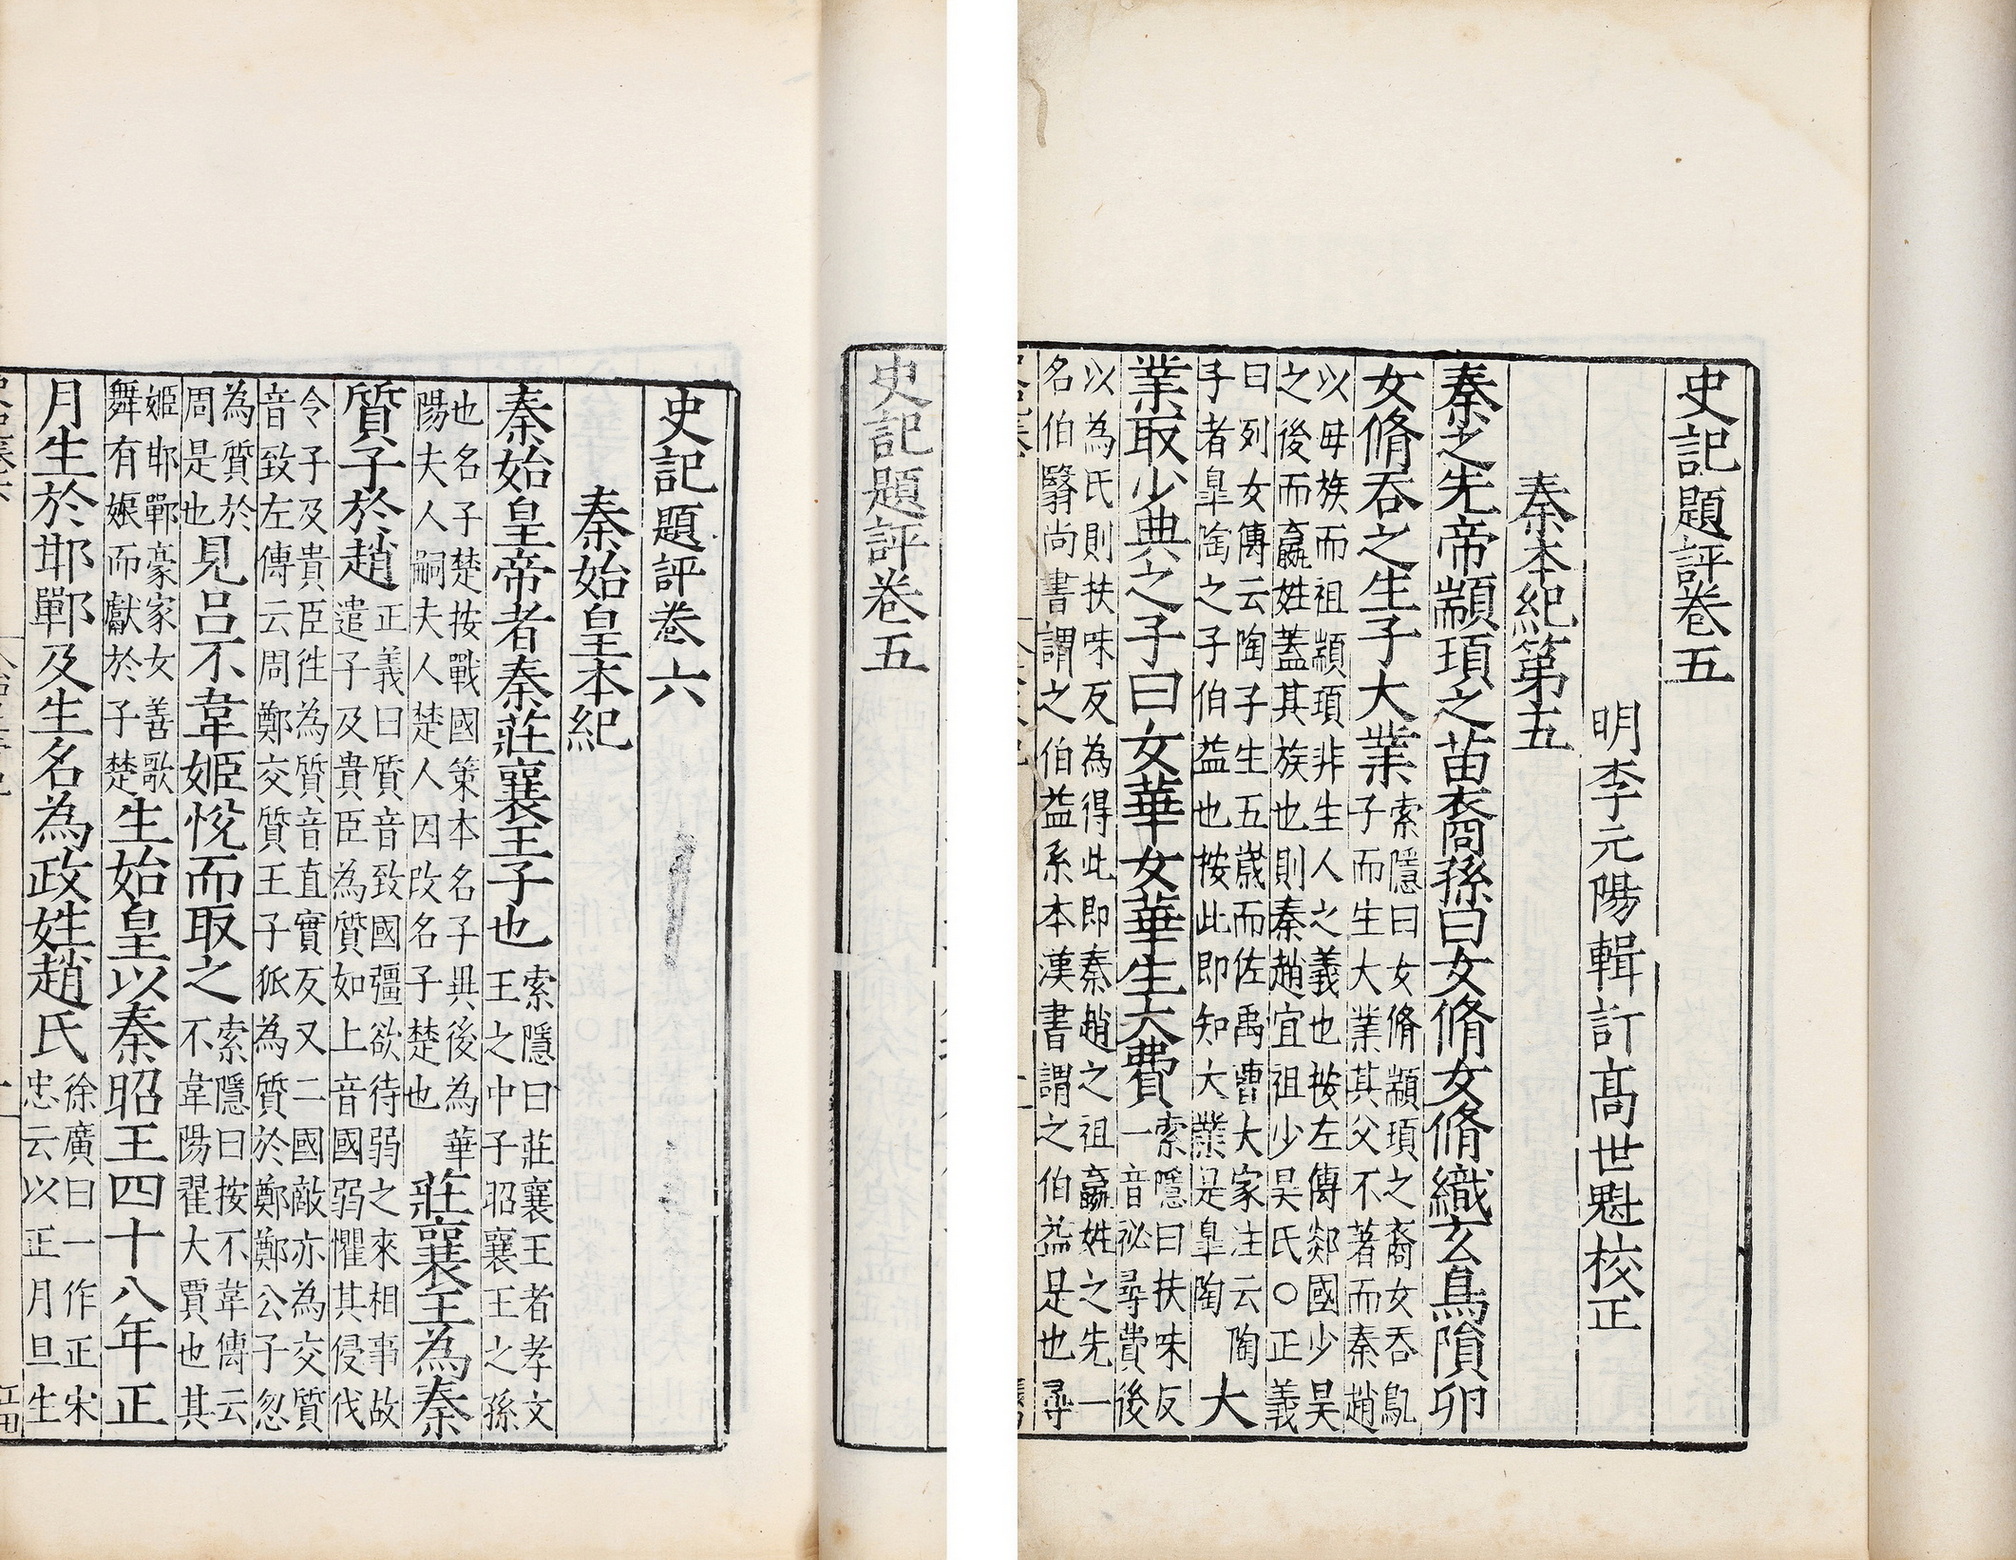 史記題評卷五
明李元陽輯訂高世魁校正
秦本紀第五
秦之先帝顓頊之苗裔孫曰女脩女脩織玄鳥隕卵
女脩吞之生子大業索隱曰女脩顓頊之裔女吞鳦
子而生大業其父不著而秦趙
以母族而祖顓頊非生人之義也按左傳郯國少昊
之後而嬴姓蓋其族也則秦趙宜祖少昊氏○正義
曰列女傳云陶子生五歲而佐禹曹大家注云陶
子者臯陶之子伯益也按此即知大業是臯陶
大
業取少典之子曰女華女華生大費索隱曰扶味反
一音祕尋費後
以為氏則扶味反為得此即秦趙之祖嬴姓之先一
名伯翳尚書謂之伯益系本漢書謂之伯益是也尋
史記題評卷五
史記題評卷六
秦始皇本紀
秦始皇帝者秦莊襄王子也索隱曰莊襄王者孝文
王之中子昭襄王之孫
也名子楚按戰國策本名子異後為華
陽夫人嗣夫人楚人因改名子楚也
莊襄王為秦
質子於趙正義曰質音致國彊欲待弱之來相事故
遣子及貴臣為質如上音國弱懼其侵伐
令子及貴臣徃為質音直實反又二國敵亦為交質
音致左傳云周鄭交質王子狐為質於鄭鄭公子忽
為質於
周是也
見呂不韋姬悅而取之索隱曰按不韋傳云
不韋陽翟大賈也其
姬邯鄲豪家女善歌
舞有娠而獻於子楚
生始皇以秦昭王四十八年正
月生於邯鄲及生名為政姓趙氏徐廣曰一作正宋
忠云以正月旦生